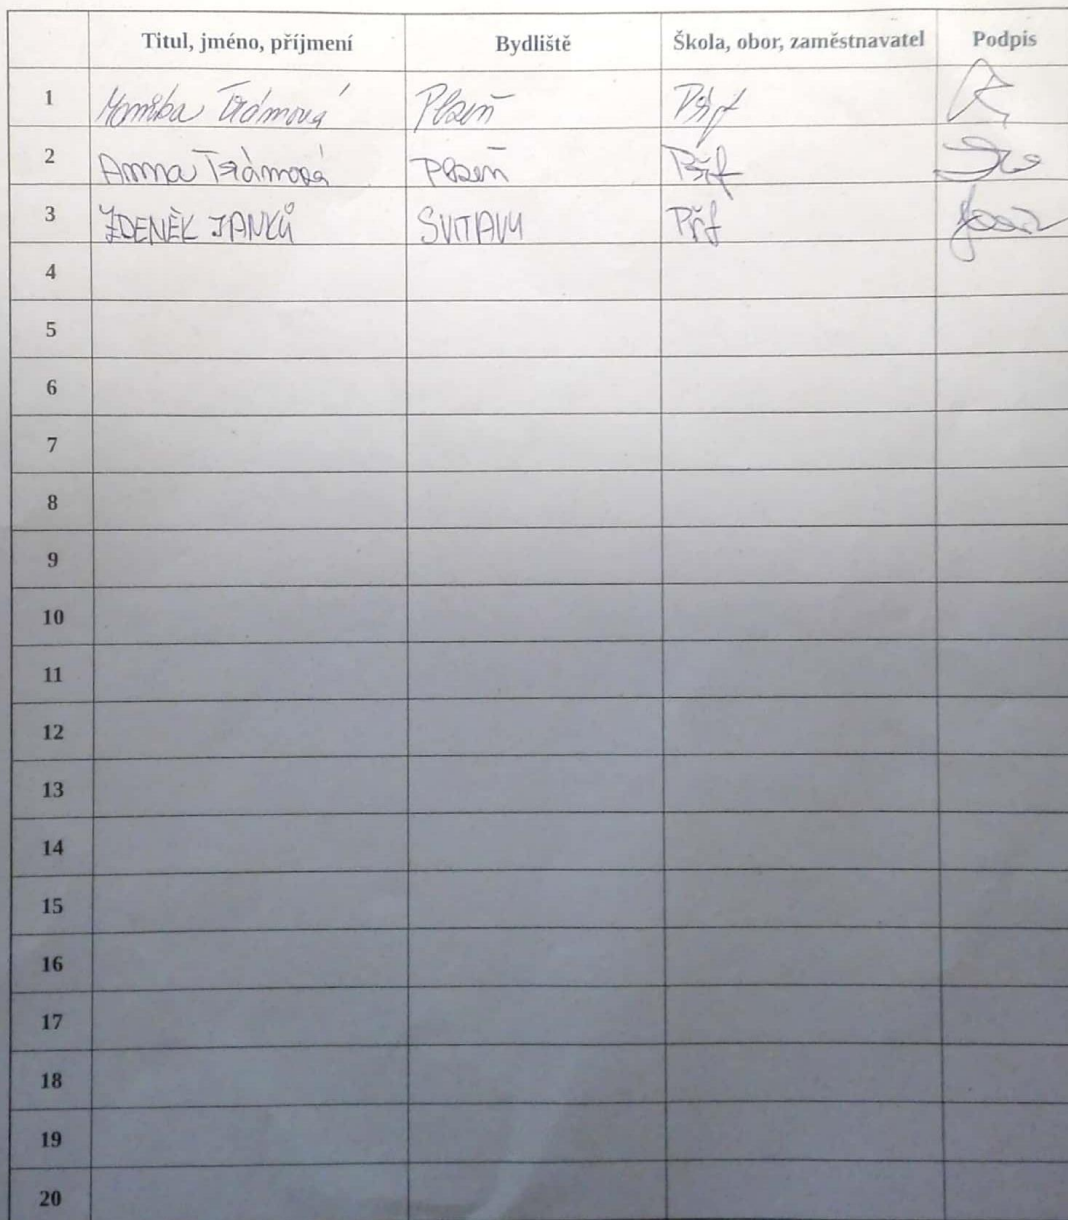 Titul, jméno, příjmení Bydliště Škola, obor, zaměstnavatel Podpis
1 Monika Trámová Plzeň Přf
2 Anna Trámová Plzeň Přf
3 ZDENĚK JANKŮ SVITAVY Přf
4
5
6
7
8
9
10
11
12
13
14
15
16
17
18
19
20